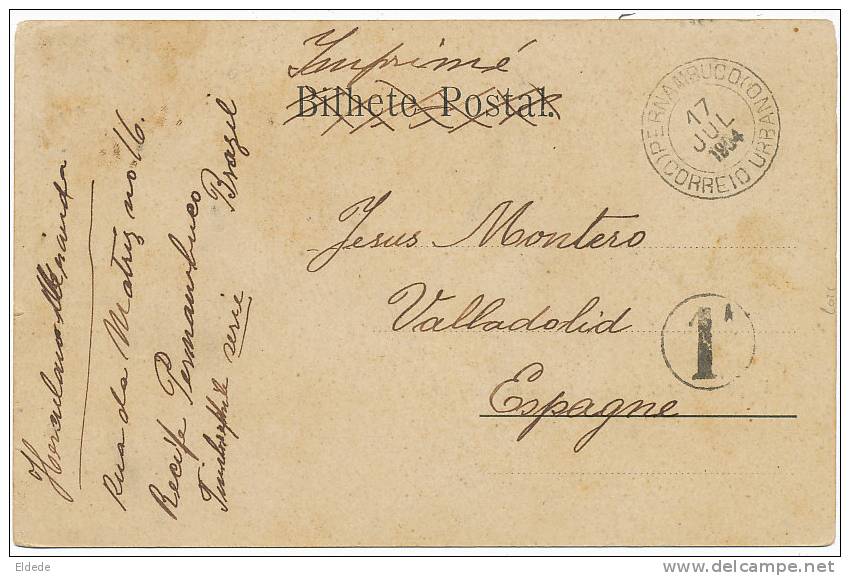 Imprimé
Bilhete Postal.
PERNAMBUCO (CORREIO URBANO)
17
JUL
1904
Jesus Montero
Valladolid
Espagne
1ª
Herculano Miranda
Rua da Matriz no 16.
Recife Pernambuco
serie Brazil
Eldede
delcampe.net